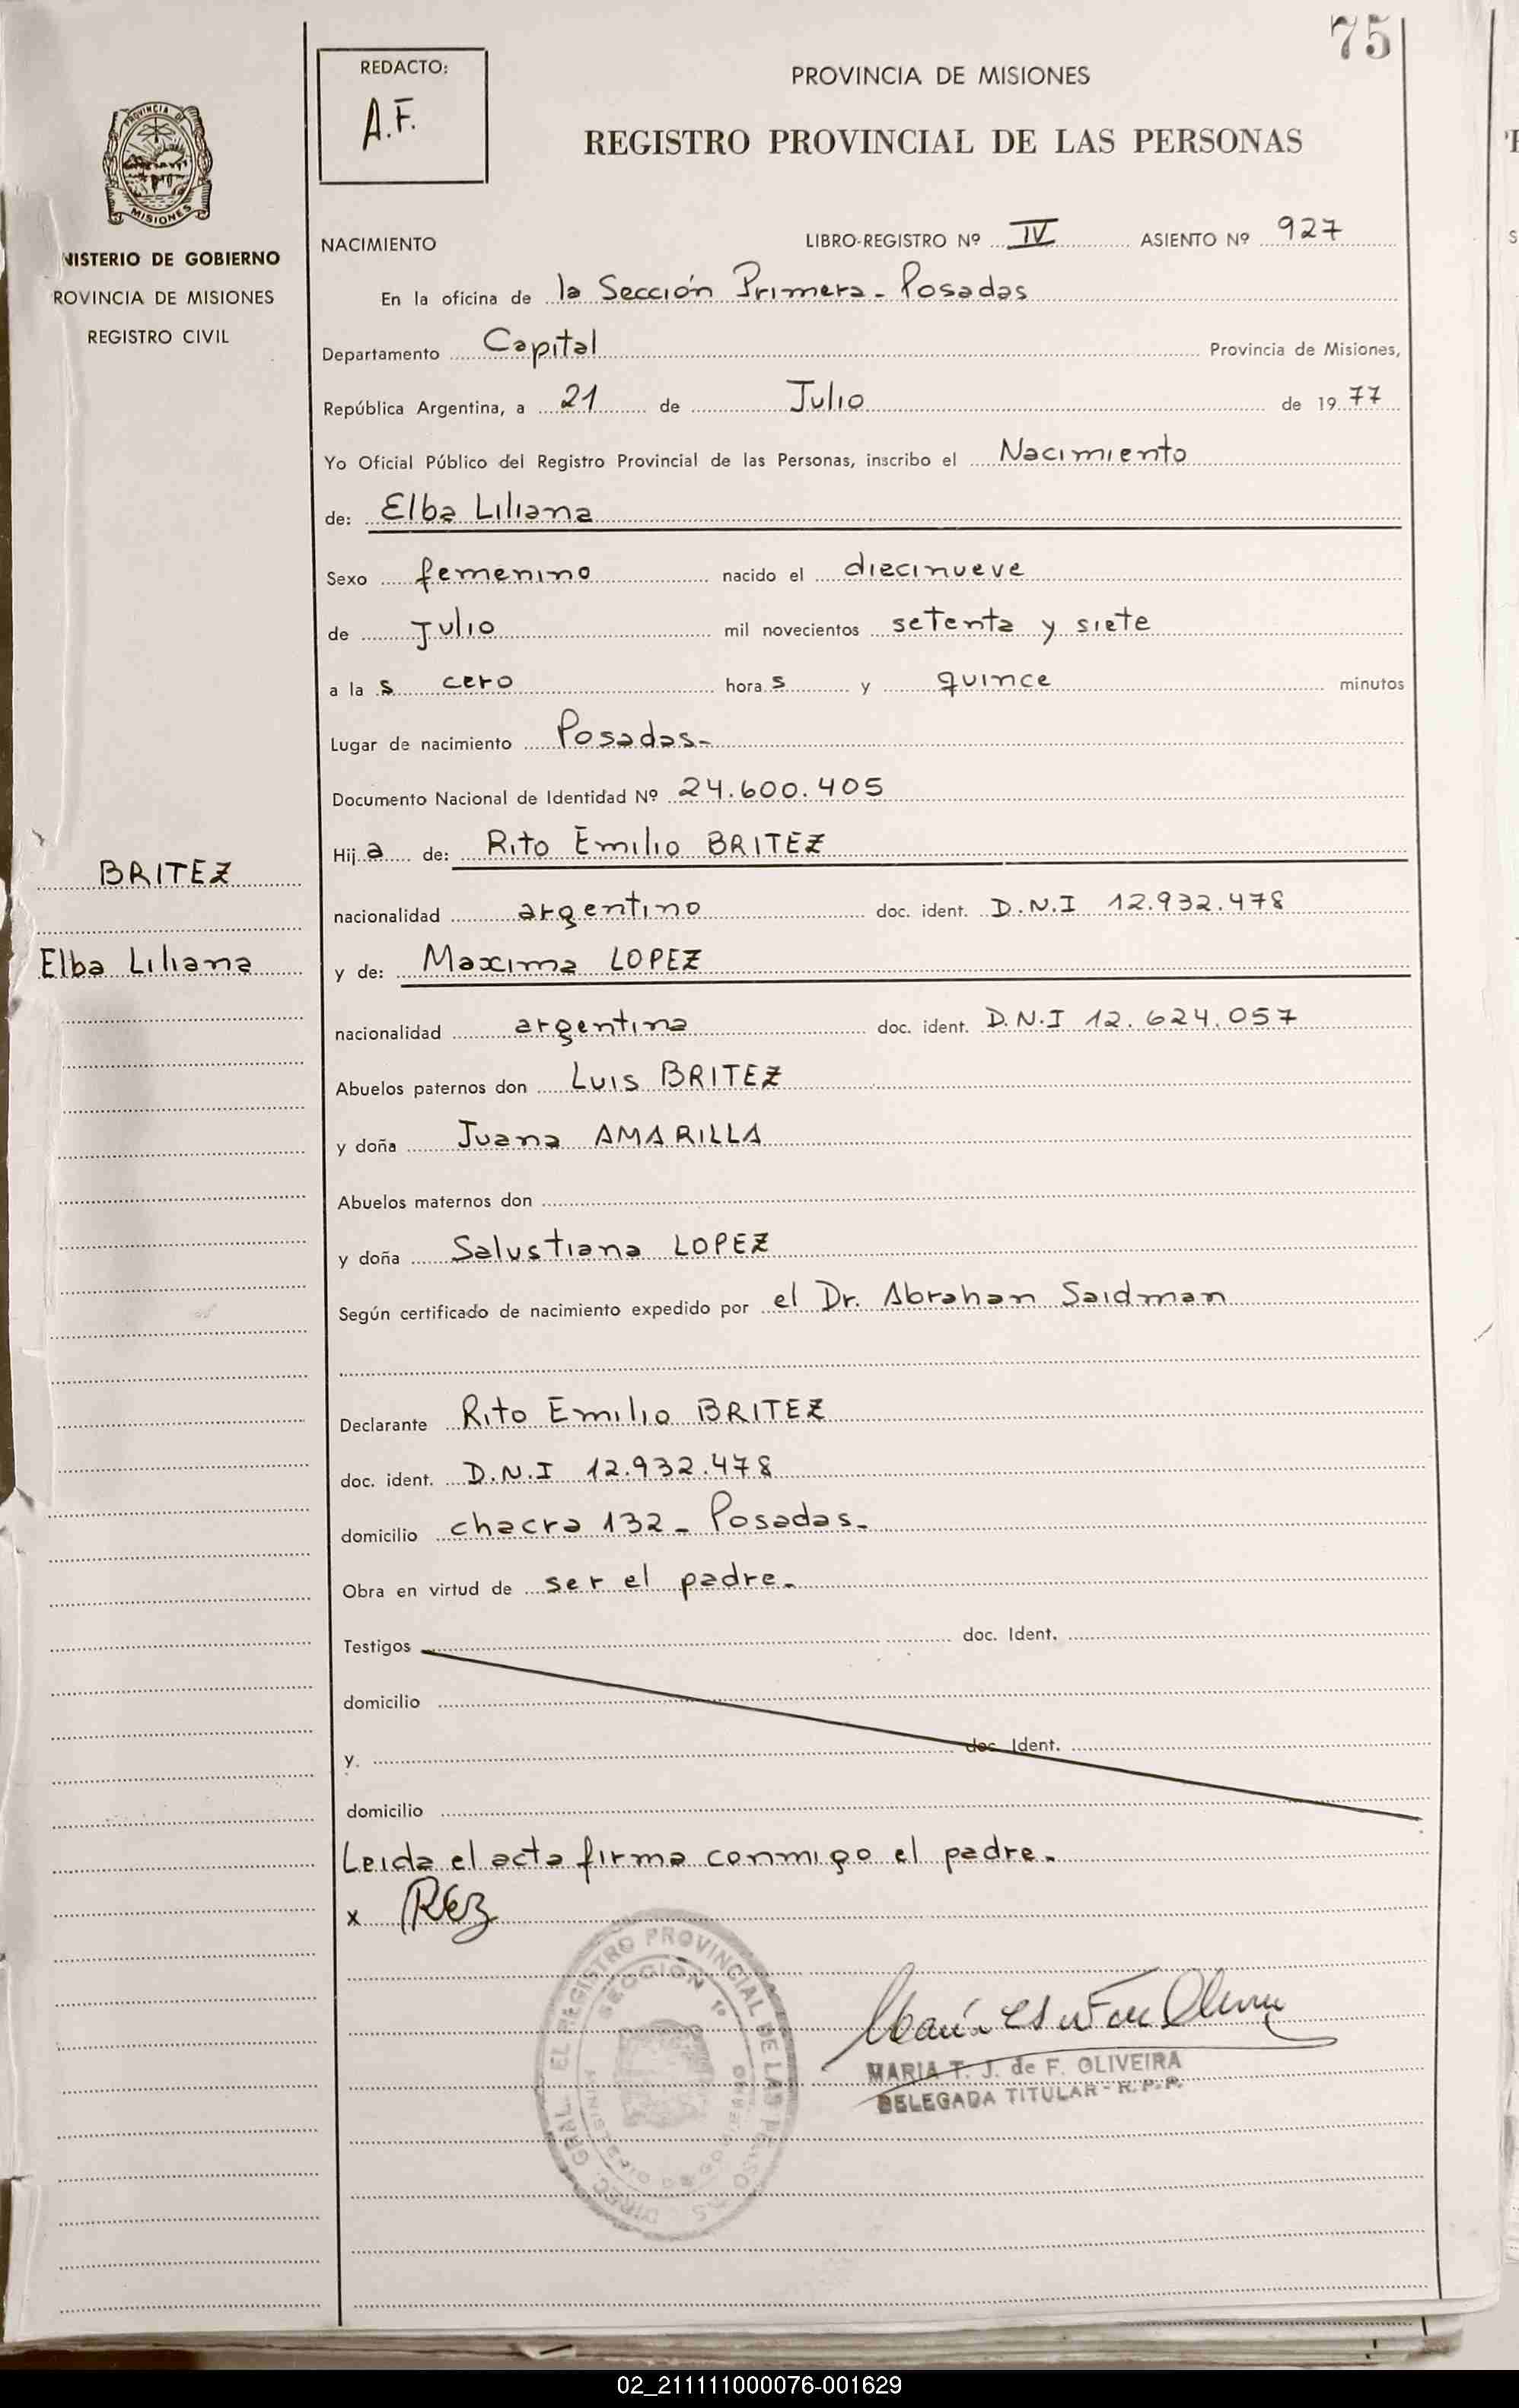 75
REDACTO:
A.F.
PROVINCIA DE MISIONES
REGISTRO PROVINCIAL DE LAS PERSONAS
PROVINCIA DE
MISIONES
NISTERIO DE GOBIERNO
ROVINCIA DE MISIONES
REGISTRO CIVIL
NACIMIENTO LIBRO-REGISTRO Nº IV ASIENTO Nº 927
En la oficina de la Sección Primera - Posadas
Departamento Capital Provincia de Misiones,
República Argentina, a 21 de Julio de 1977
Yo Oficial Público del Registro Provincial de las Personas, inscribo el Nacimiento
de: Elba Liliana
Sexo femenino nacido el diecinueve
de Julio mil novecientos setenta y siete
a las cero horas y quince minutos
Lugar de nacimiento Posadas-
Documento Nacional de Identidad Nº 24.600.405
Hija de: Rito Emilio BRITEZ
BRITEZ
nacionalidad argentino doc. ident. D.N.I 12.932.478
Elba Liliana
y de: Maxima LOPEZ
nacionalidad argentina doc. ident. D.N.I 12.624.057
Abuelos paternos don Luis BRITEZ
y doña Juana AMARILLA
Abuelos maternos don
y doña Salustiana LOPEZ
Según certificado de nacimiento expedido por el Dr. Abrahan Saidman
Declarante Rito Emilio BRITEZ
doc. ident. D.N.I 12.932.478
domicilio chacra 132 - Posadas-
Obra en virtud de ser el padre-
Testigos doc. Ident.
domicilio
y. doc. Ident.
domicilio
Leida el acta firma conmigo el padre-
x REz
DIREC. GRAL. EL REGISTRO PROVINCIAL DE LAS PERSONAS
SECCION 1º
MINISTERIO DE GOBIERNO
MARIA T. J. de F. OLIVEIRA
DELEGADA TITULAR - R.P.P.
02_211111000076-001629